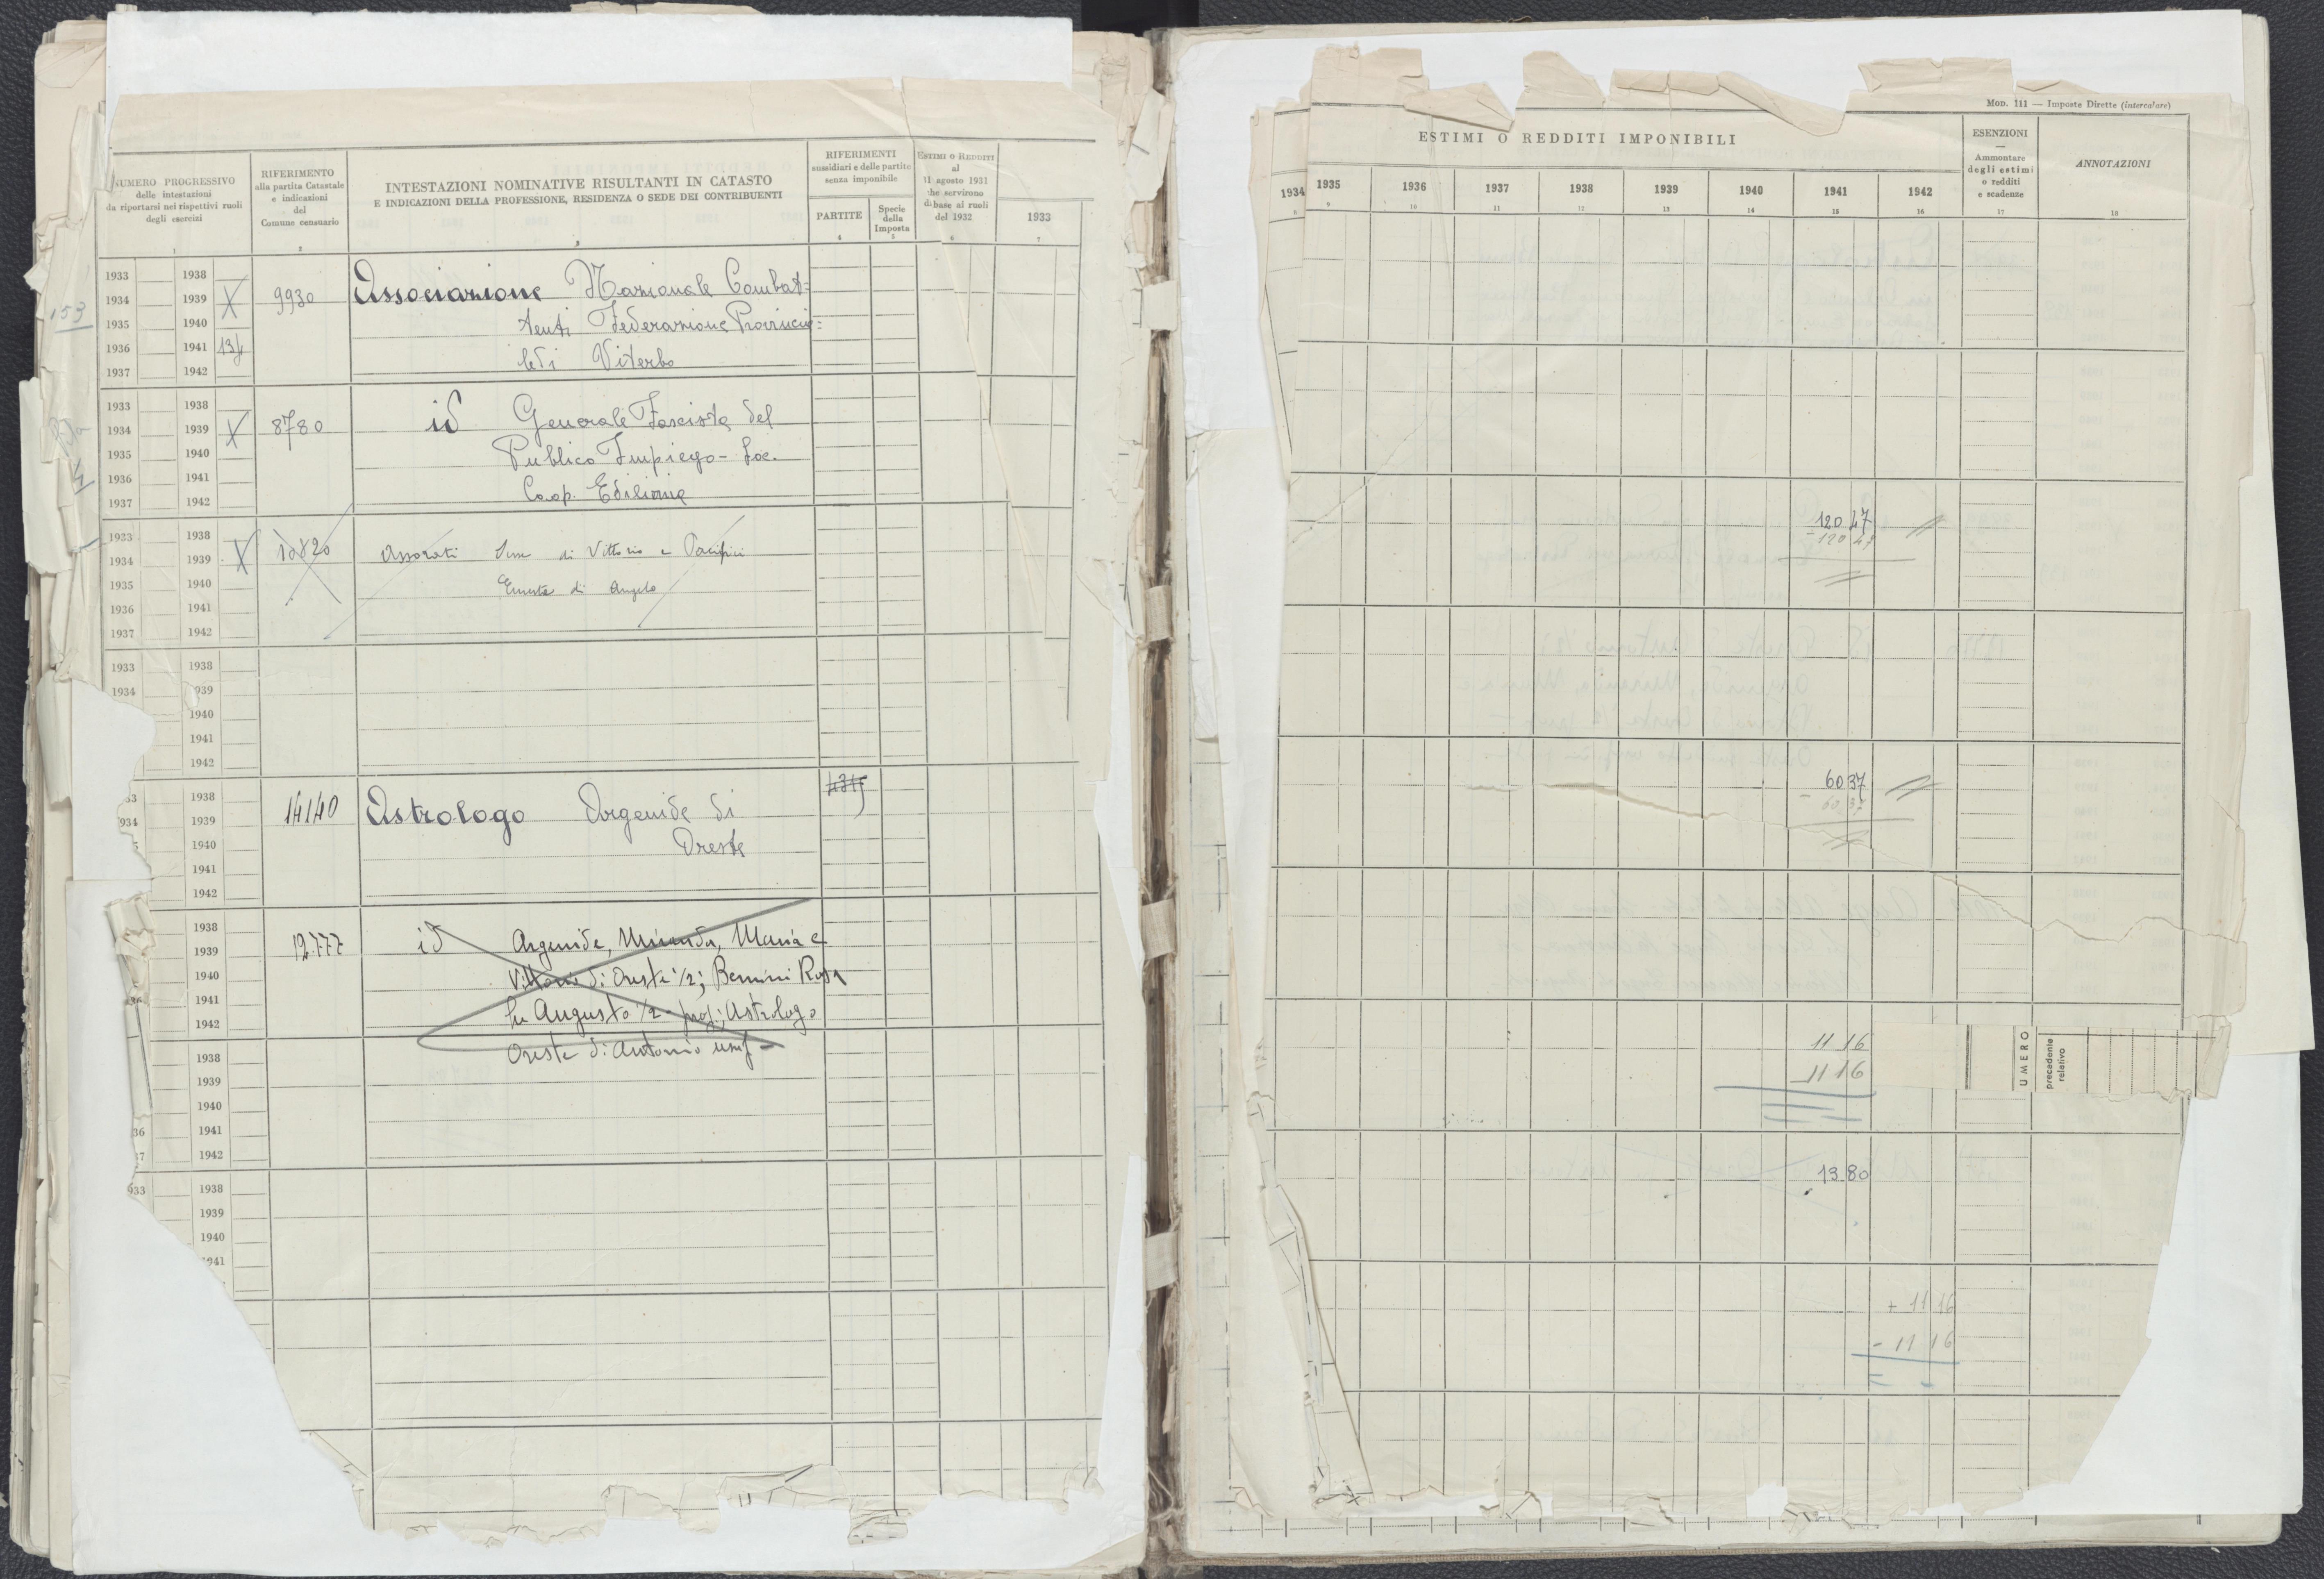 NUMERO PROGRESSIVO
delle intestazioni
da riportarsi nei rispettivi ruoli
degli esercizi
1
RIFERIMENTO
alla partita Catastale
e indicazioni
del
Comune censuario
2
INTESTAZIONI NOMINATIVE RISULTANTI IN CATASTO
E INDICAZIONI DELLA PROFESSIONE, RESIDENZA O SEDE DEI CONTRIBUENTI
3
RIFERIMENTI
sussidiari e delle partite
senza imponibile
PARTITE
4
Specie
della
Imposta
5
ESTIMI O REDDITI
al
11 agosto 1931
che servirono
di base ai ruoli
del 1932
6
1933
7
153
1933 1938
1934 1939 X 9930 Associazione Nazionale Combat=
1935 1940 tenti Federazione Provincia=
1936 1941 134
1937 1942 le di Viterbo
1933 1938
1934 1939 X 8780 id Generale Fascista del
1935 1940 Publico Impiego - Soc.
1936 1941
1937 1942 Coop. Edilizia
1933 1938
1934 1939 X 10820 Assorati di Vittorio e Pacifici
1935 1940 Ernesta di Angelo
1936 1941
1937 1942
1933 1938
1934 939
1940
1941
1942
33 1938
934 1939 14140 Astrologo Argenide di
1940 Oreste
1941
1942
1938
1939 12777 id Argenide, Miranda, Maria e
1940 Vittorio di Oreste 1/2; Bernini Rosa
1941
1942 fu Augusto 1/2 - prop; Astrologo
1938 Oreste di Antonio usuf -
1939
1940
36 1941
37 1942
933 1938
1939
1940
941
MOD. 111 — Imposte Dirette (intercalare)
ESTIMI O REDDITI IMPONIBILI
1934
8
1935
9
1936
10
1937
11
1938
12
1939
13
1940
14
1941
15
1942
16
ESENZIONI
—
Ammontare
degli estimi
o redditi
e scadenze
17
ANNOTAZIONI
18
120 47
- 120 47
60 37
- 60 37
11 16
- 11 16
UMERO
precedente
relativo
13 80
+ 11 16
- 11 16